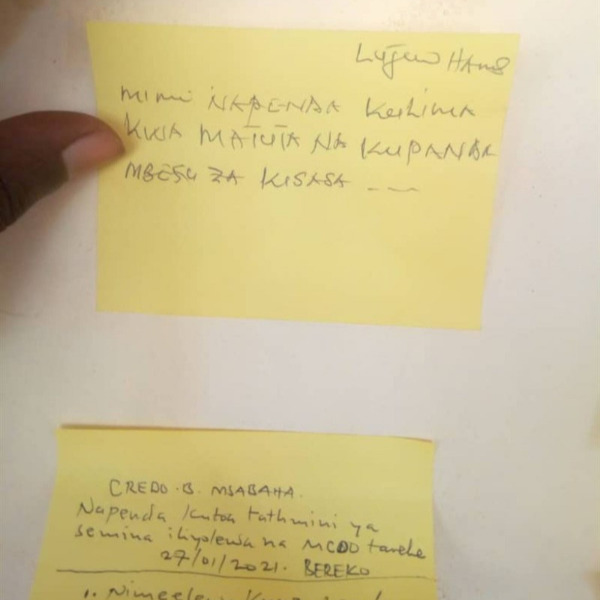 HANS
MIMI NAPENDA KULIMA
KWA MATUTA NA KUPANDA
MBEGU ZA KISASA ---
CREDO.B. MSABAHA.
Napenda kutoa tathmini ya
semina iliyolewa na MCDO tarehe
27/01/2021. BEREKO
1. Nimeelewa